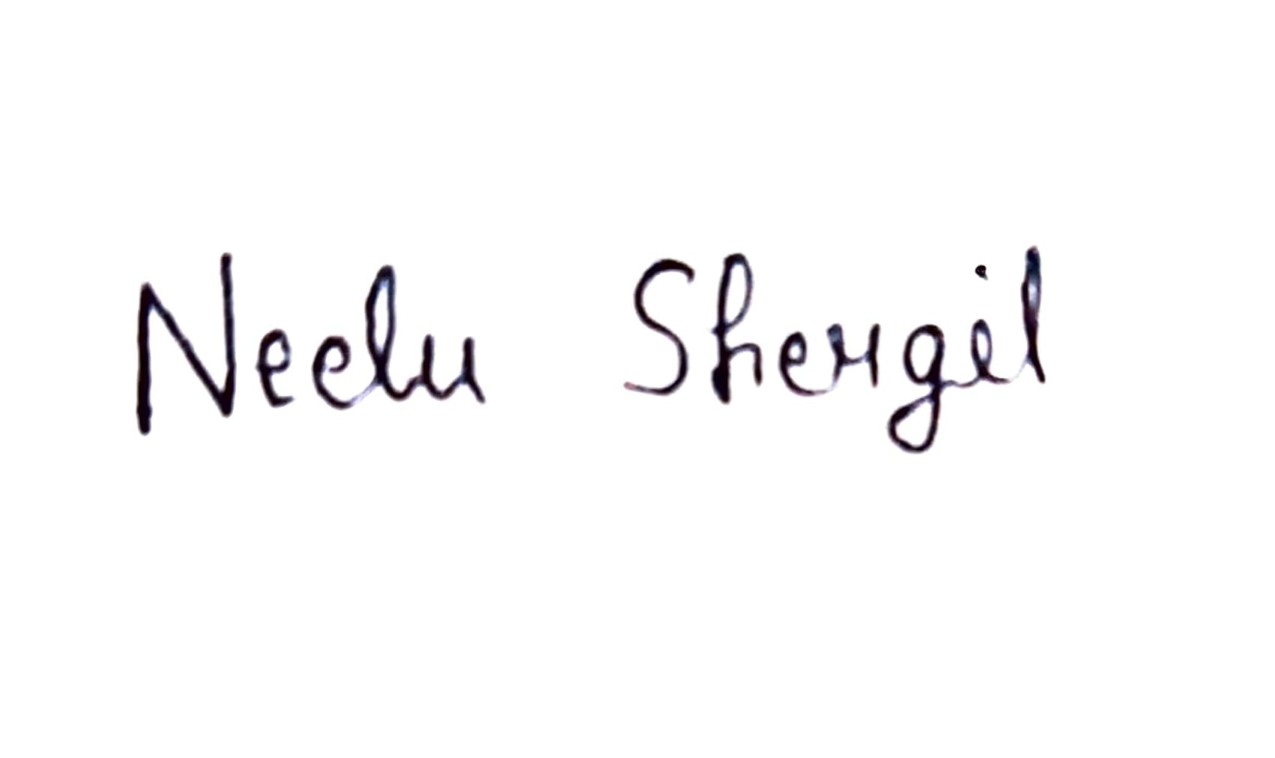 Neelu Shergil